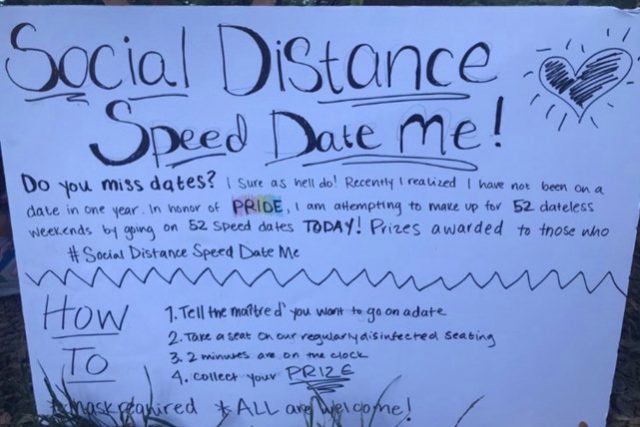 Social Distance
Speed Date Me!
Do you miss dates? I sure as hell do! Recently I realized I have not been on a
date in one year. In honor of PRIDE, I am attempting to make up for 52 dateless
weekends by going on 52 speed dates TODAY! Prizes awarded to those who
#Social Distance Speed Date Me
HOW
TO
1. Tell the maître d' you want to go on a date
2. Take a seat on our regularly disinfected seating
3. 2 minutes are on the clock
4. Collect your PRIZE
*Mask required *ALL are welcome!